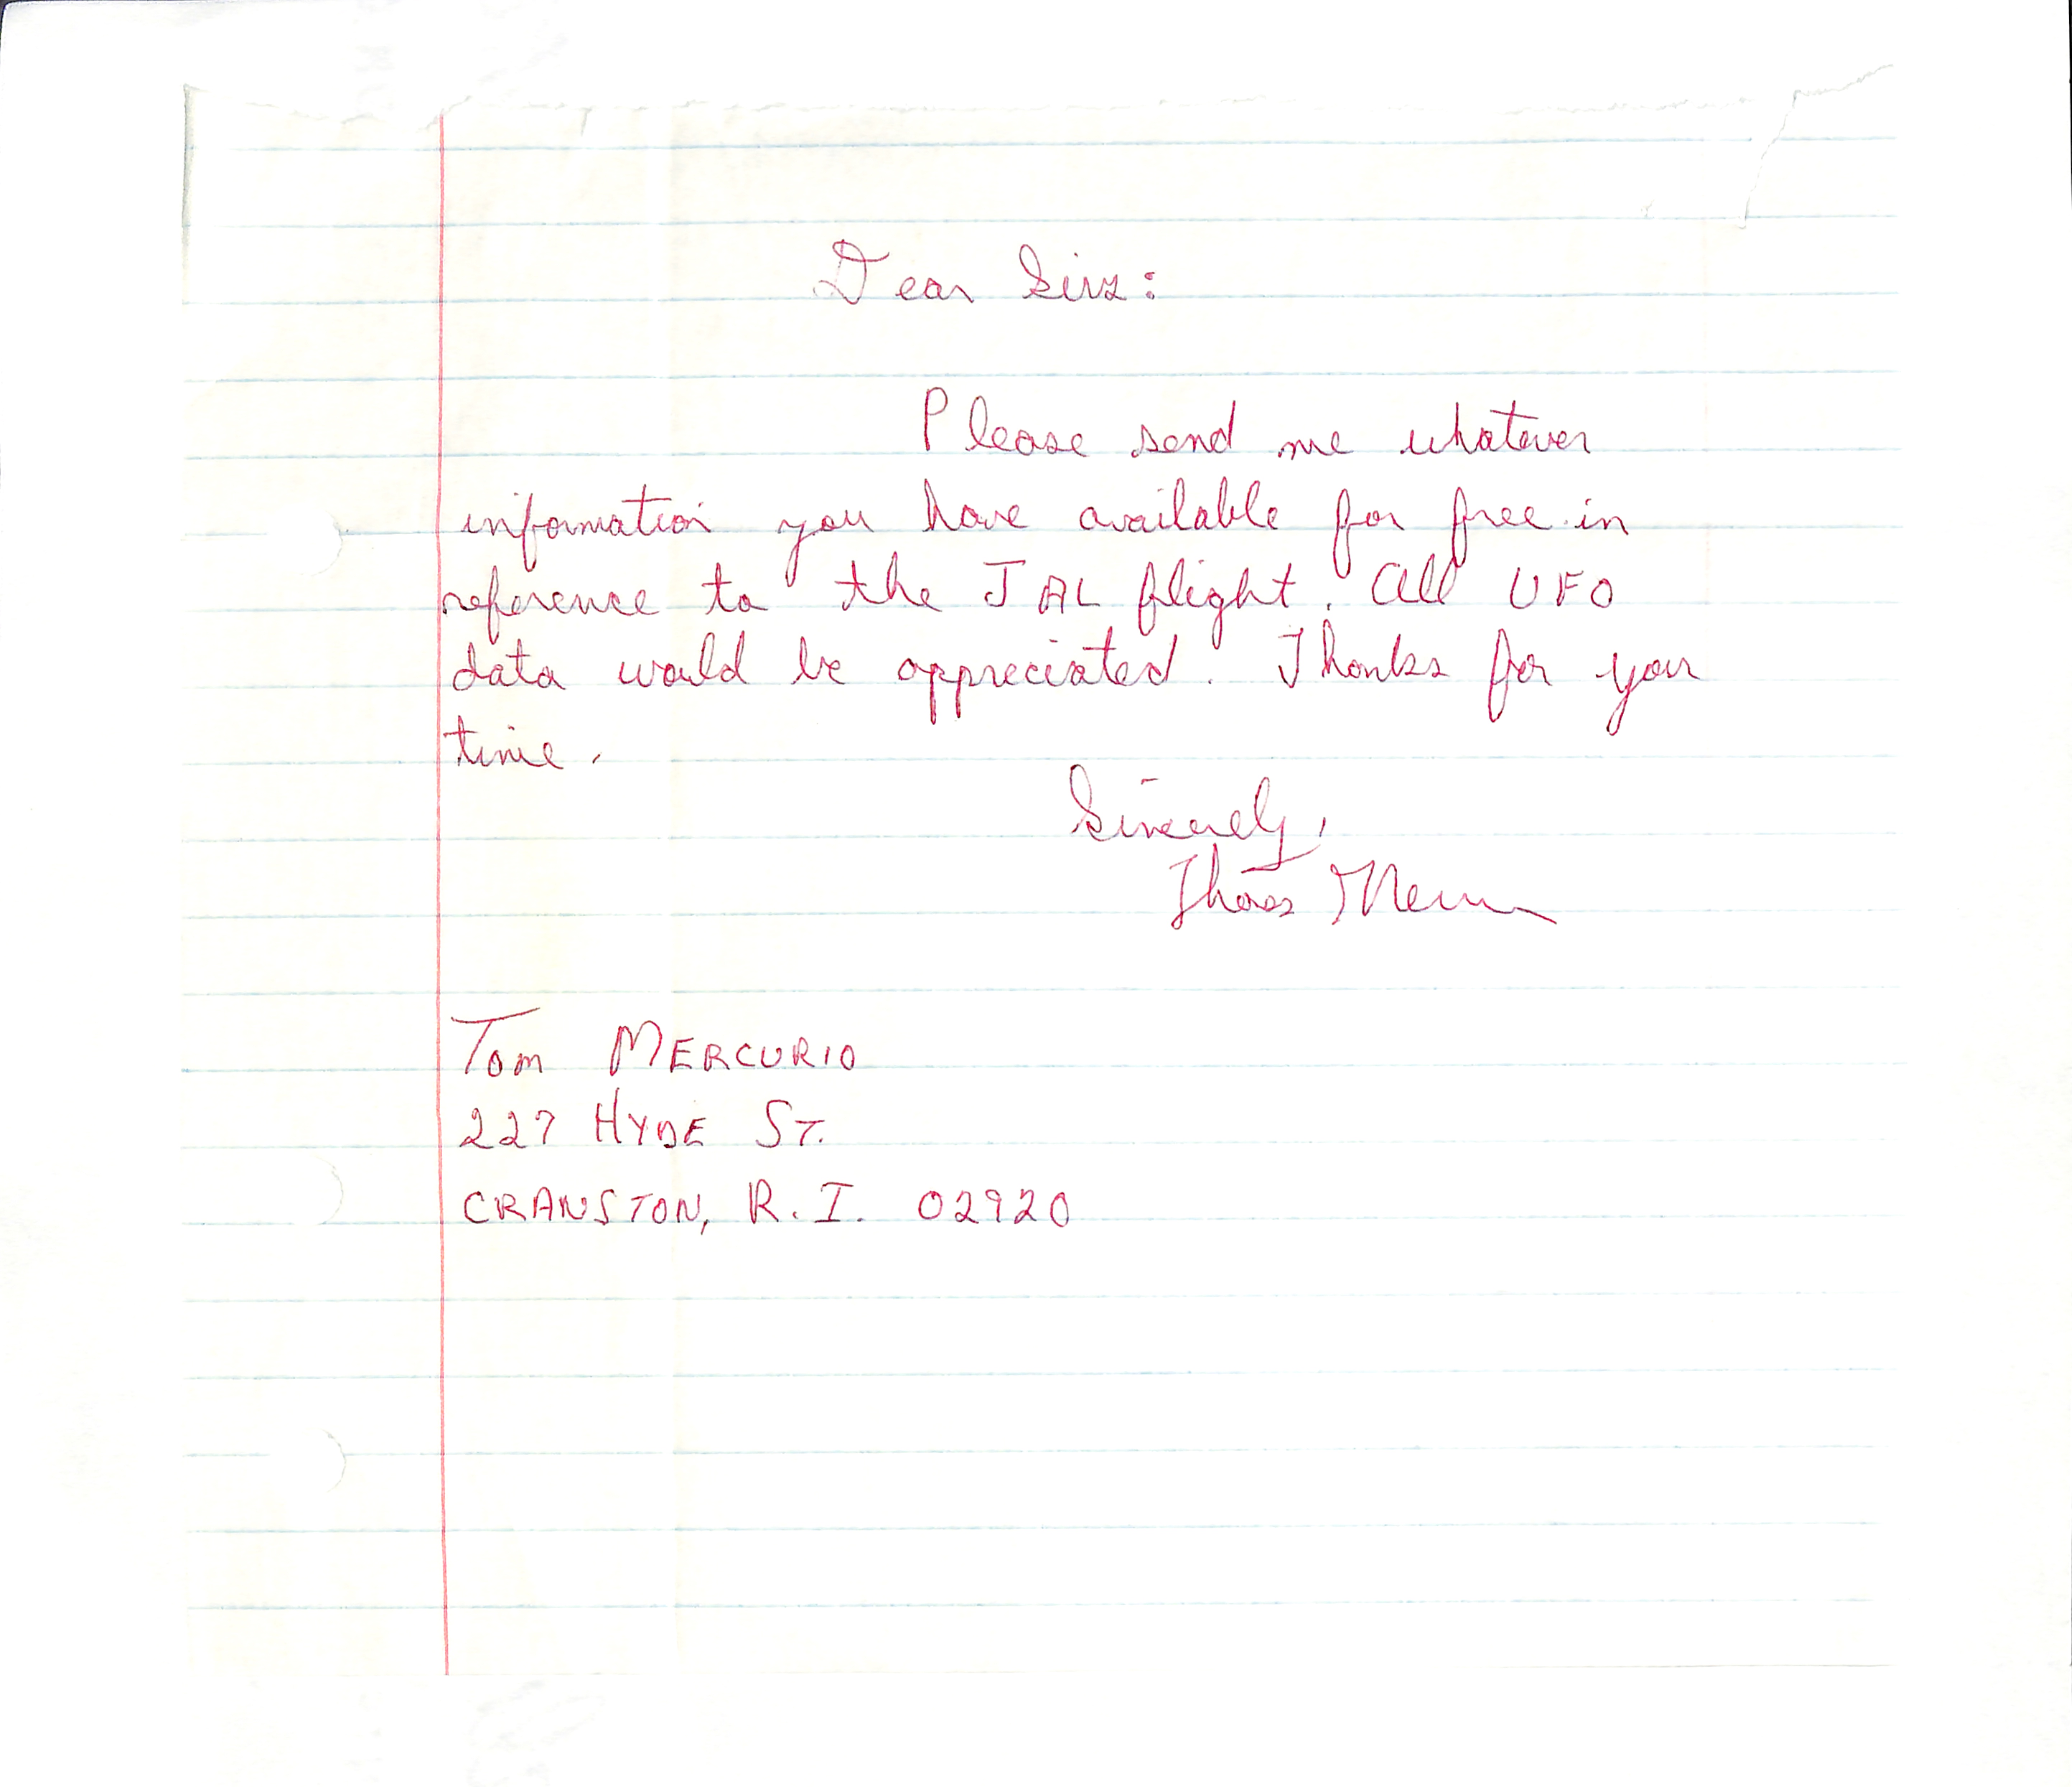 Dear Sirs:
Please send me whatever
information you have available for free in
reference to the JAL flight. All UFO
data would be appreciated. Thanks for your
time.
Sincerely,
Thomas
TOM MERCURIO
227 HYDE ST.
CRANSTON, R.I. 02920